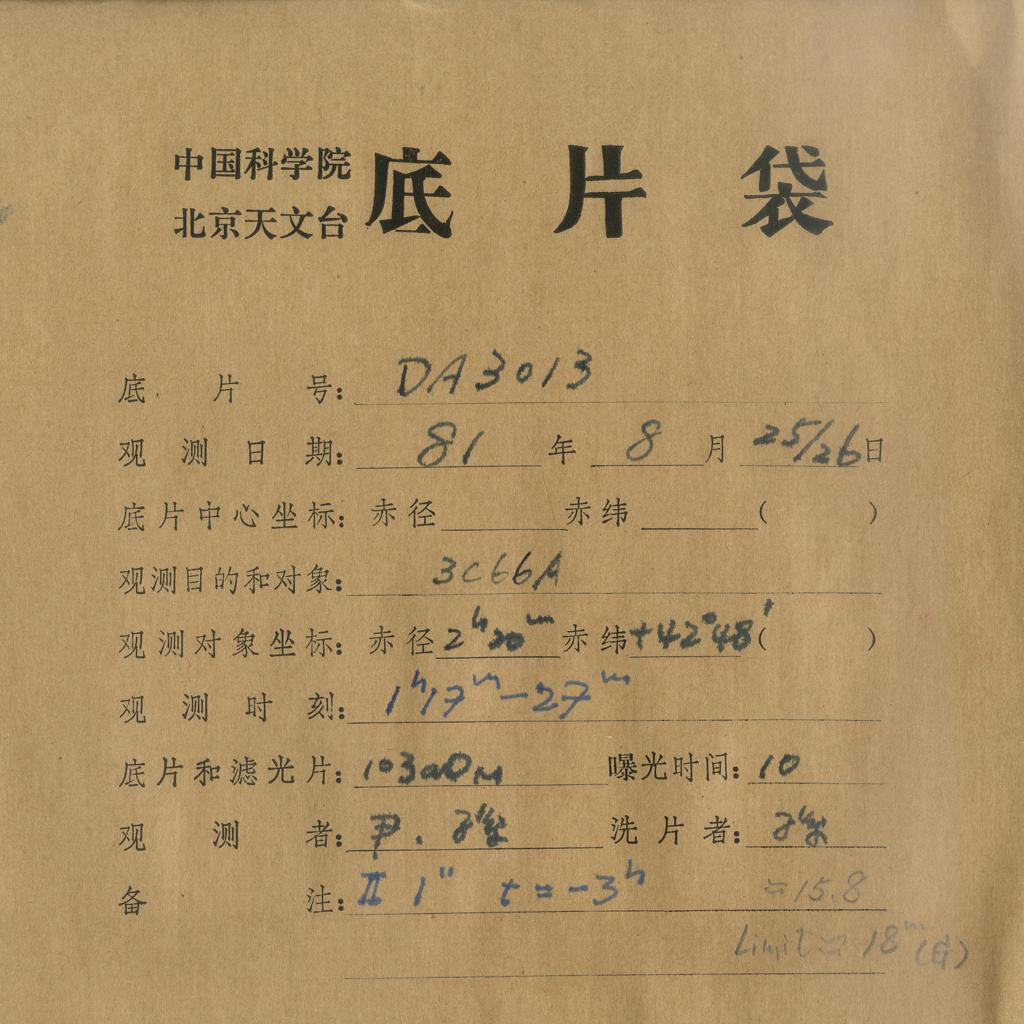 中国科学院
北京天文台
底片袋
底片号: DA3013
观测日期: 81年8月25/26日
底片中心坐标: 赤径 赤纬 ( )
观测目的和对象: 3C66A
观测对象坐标: 赤径 2h20m 赤纬 +42°48′ ( )
观测时刻: 1h17m-27m
底片和滤光片: 103aO 曝光时间: 10
观测者: 尹. 洗片者:
备注: II 1" t=-3h ≈15.8
Limit≈18m